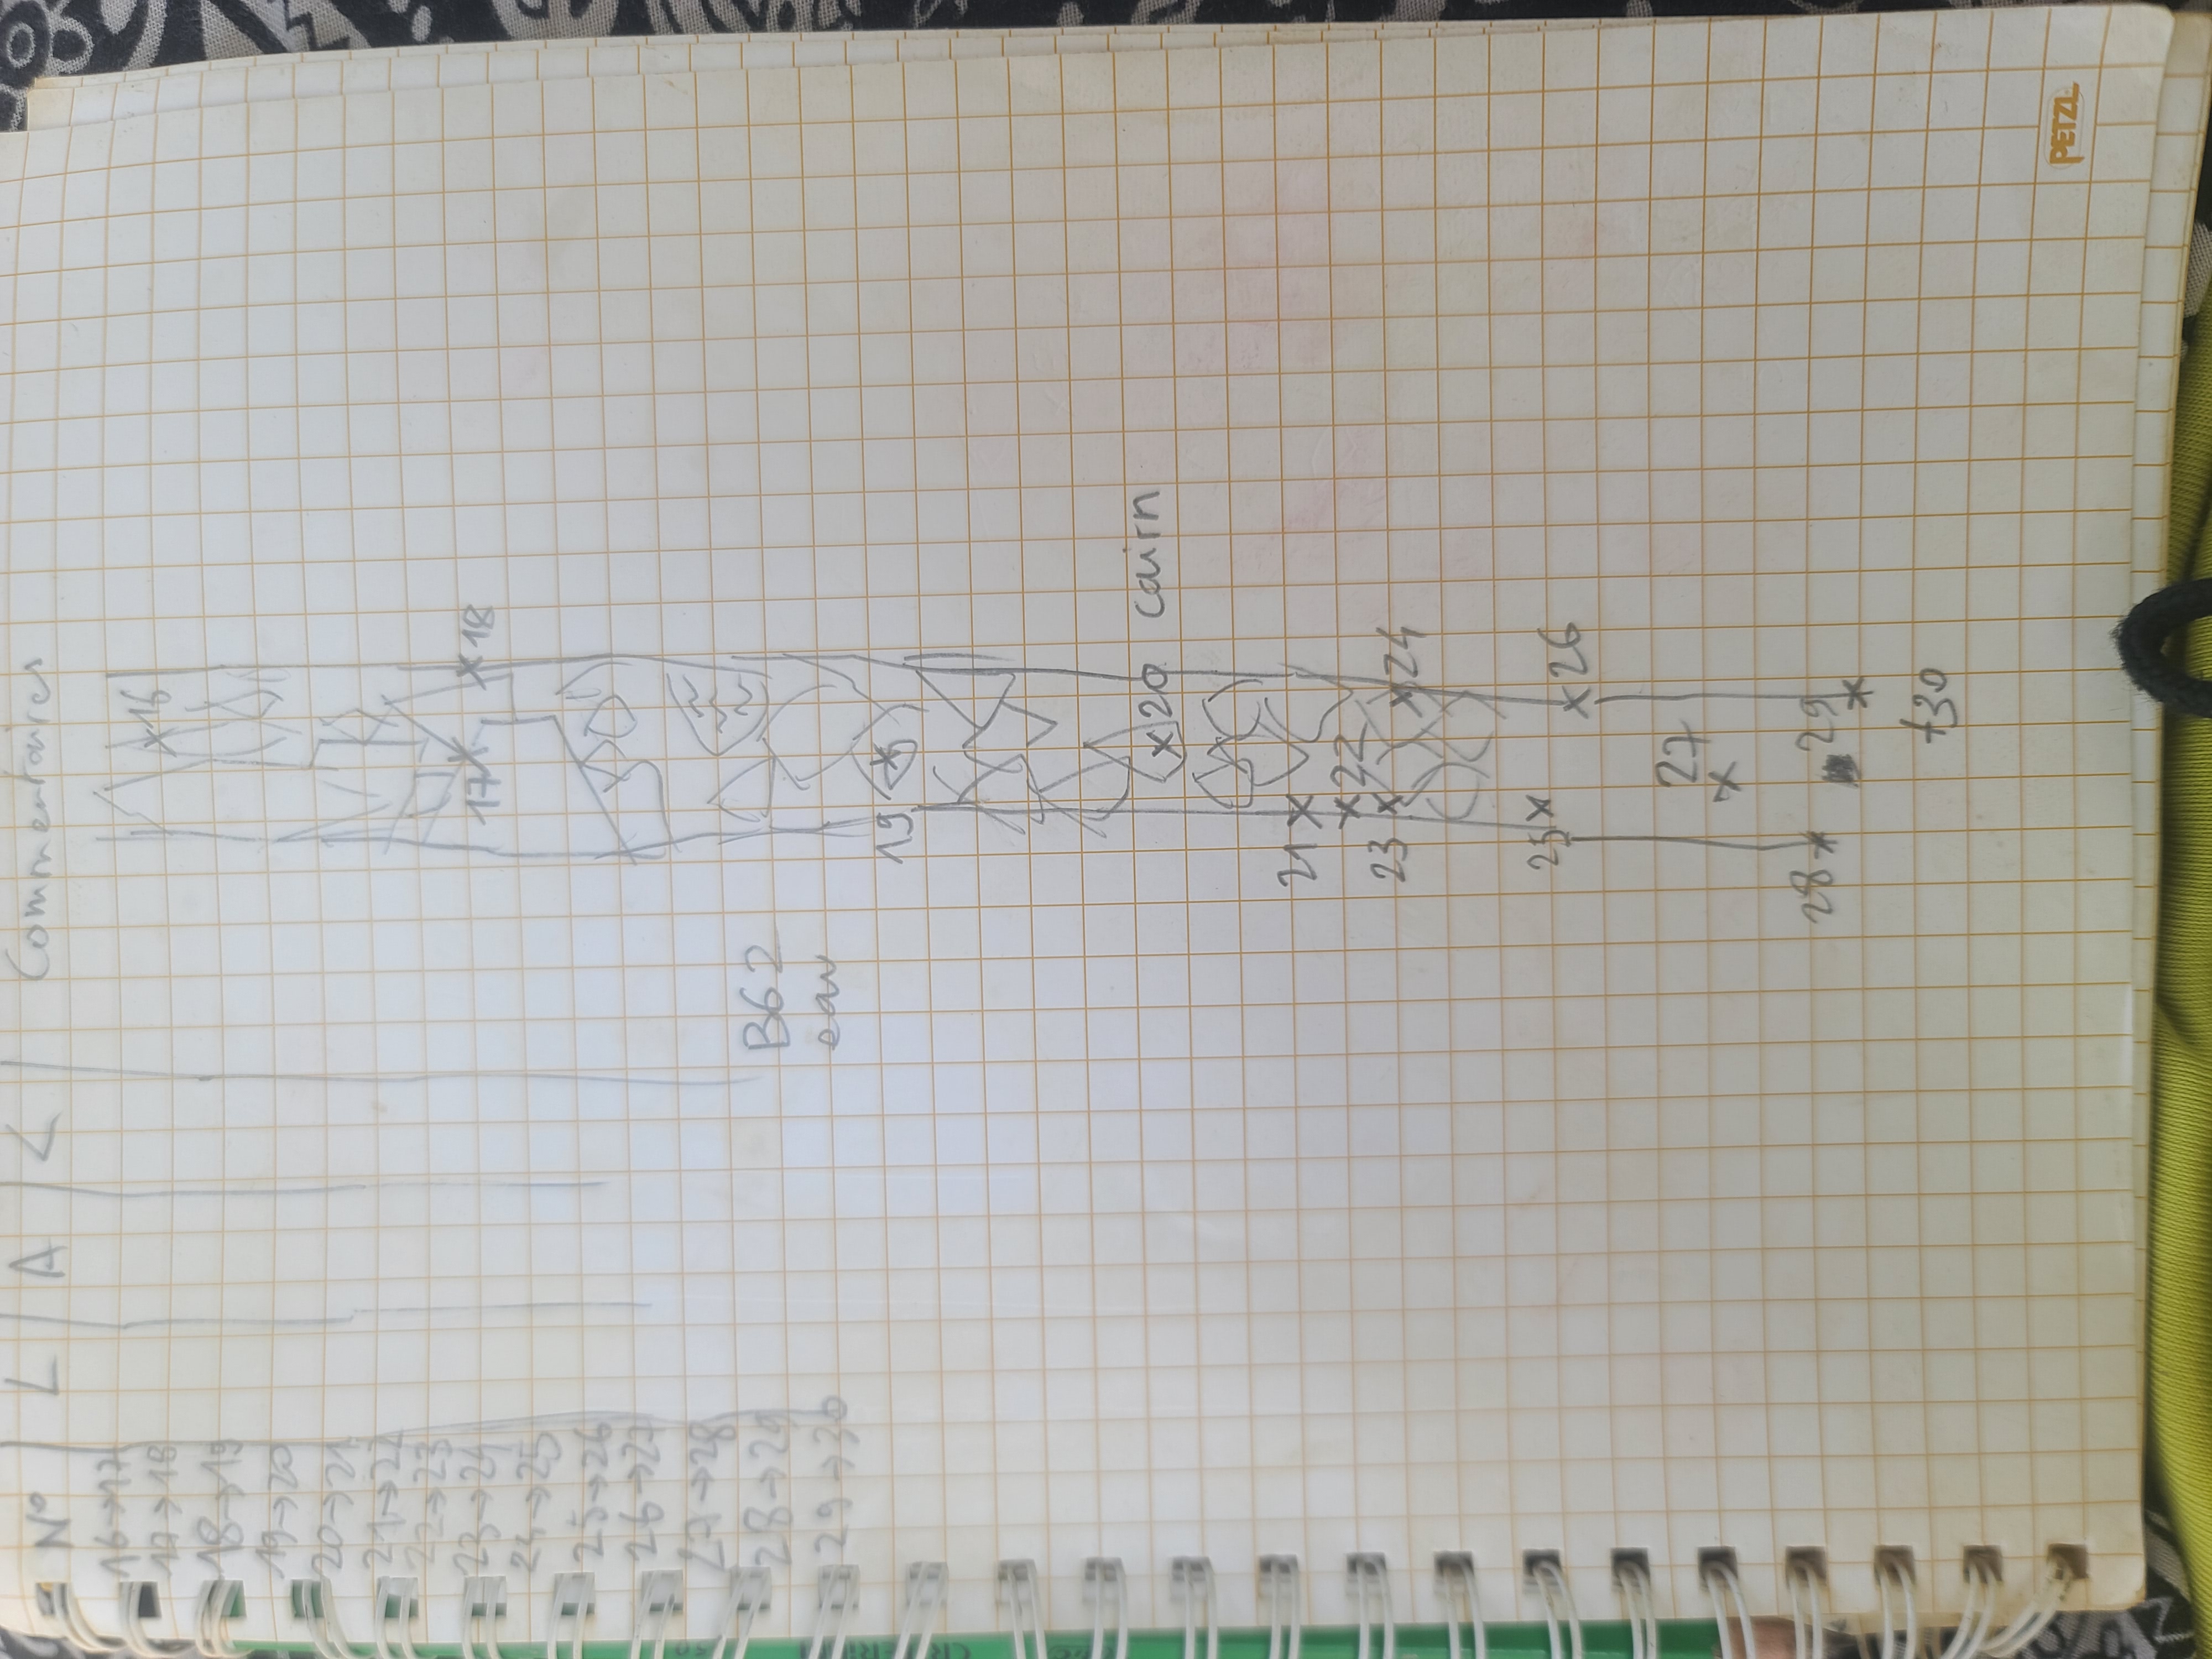 N° L A < Commentaires
16→17
17→18
18→19
19→20
20→21
21→22
22→23
23→24
24→25
25→26
26→27
27→28
28→29
29→30
16
17 18
B62
eau
19
20 cairn
21
22
23 24
25 26
27
28 29
30
PETZL